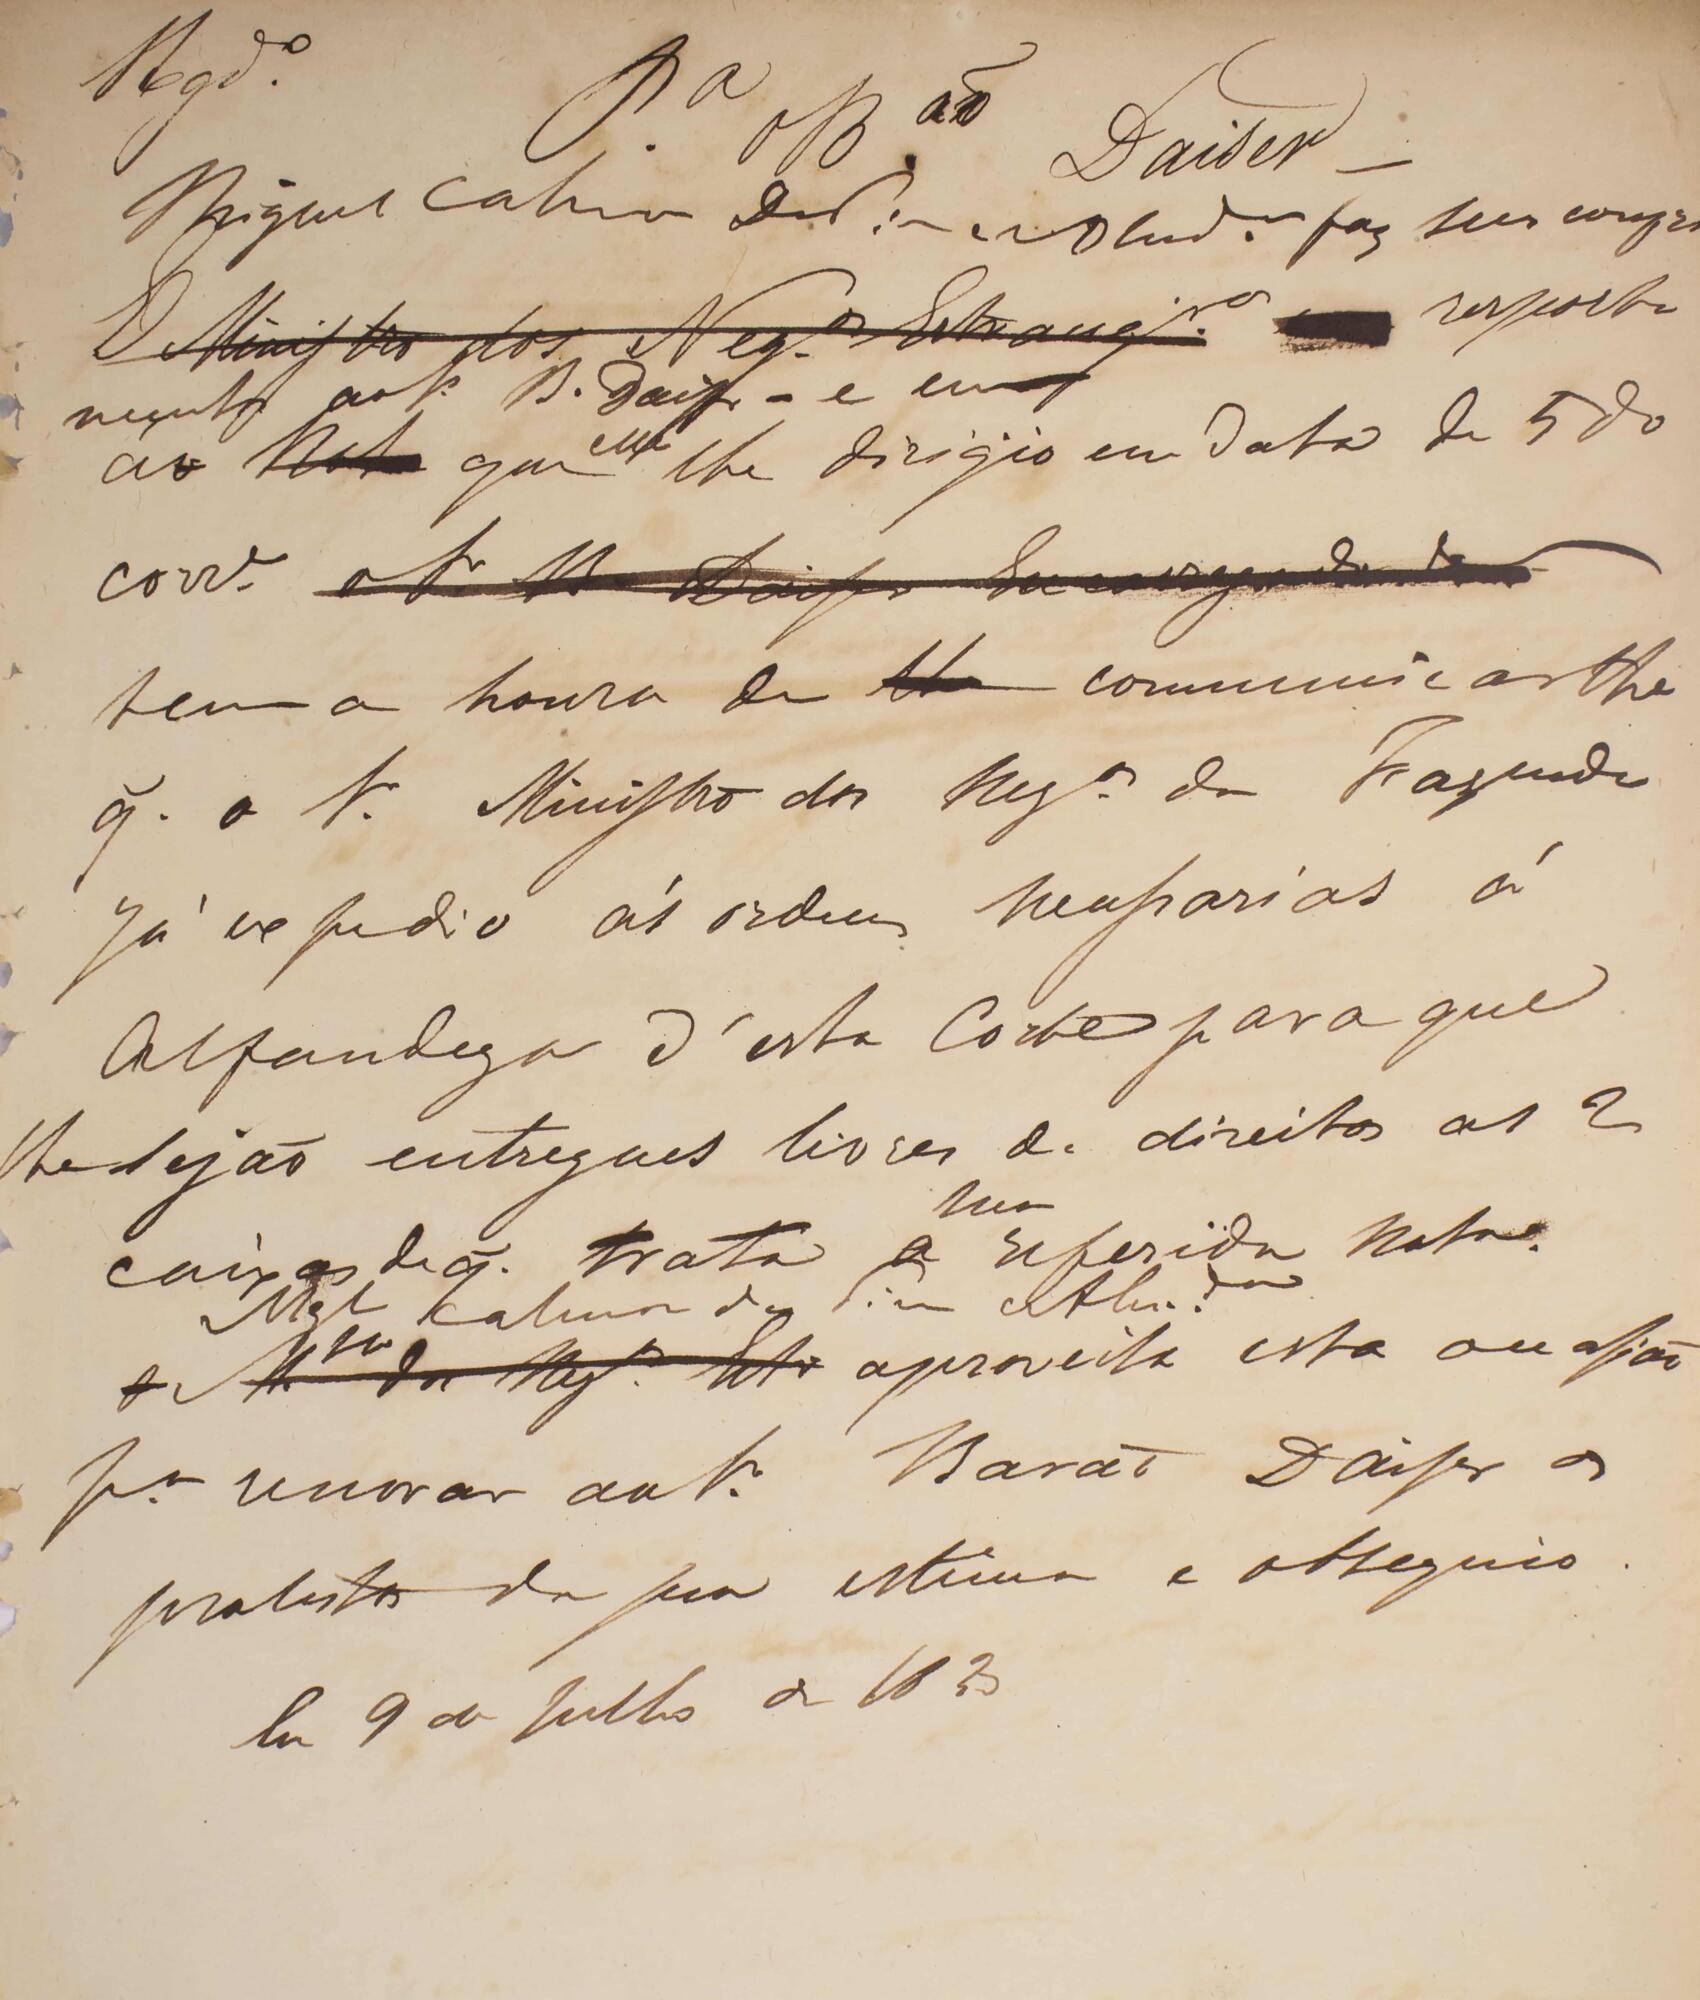 Regd.º
P.ª o B.ão Daiser –
Miguel Calmon Du P.in e Almd.ª faz seus compri
O Ministro dos Neg.os Estrang.ros resposta
mentos ao S.r B. Daiser – e em
áo Nota que elle lhe dirigio em data de 5 do
corr.e o S.r B. Daiser Encarregado de
tem a honra de lhe communicar lhe
q̃. o S.r Ministro dos Neg.os da Fazenda
já expedio ás ordens necessarias á
Alfandega d'esta Corte para que
lhe sejão entregues livres de direitos as 2
caixas de q̃. trata a referida Nota.
Mgl Calmon du Pin e Alm.da
o M.ro dos Neg.os Estr aproveita esta occasião
p.ª renovar ao S.r Barão Daiser os
protestos da sua estima e obsequio.
Em 9 de Julho de 183